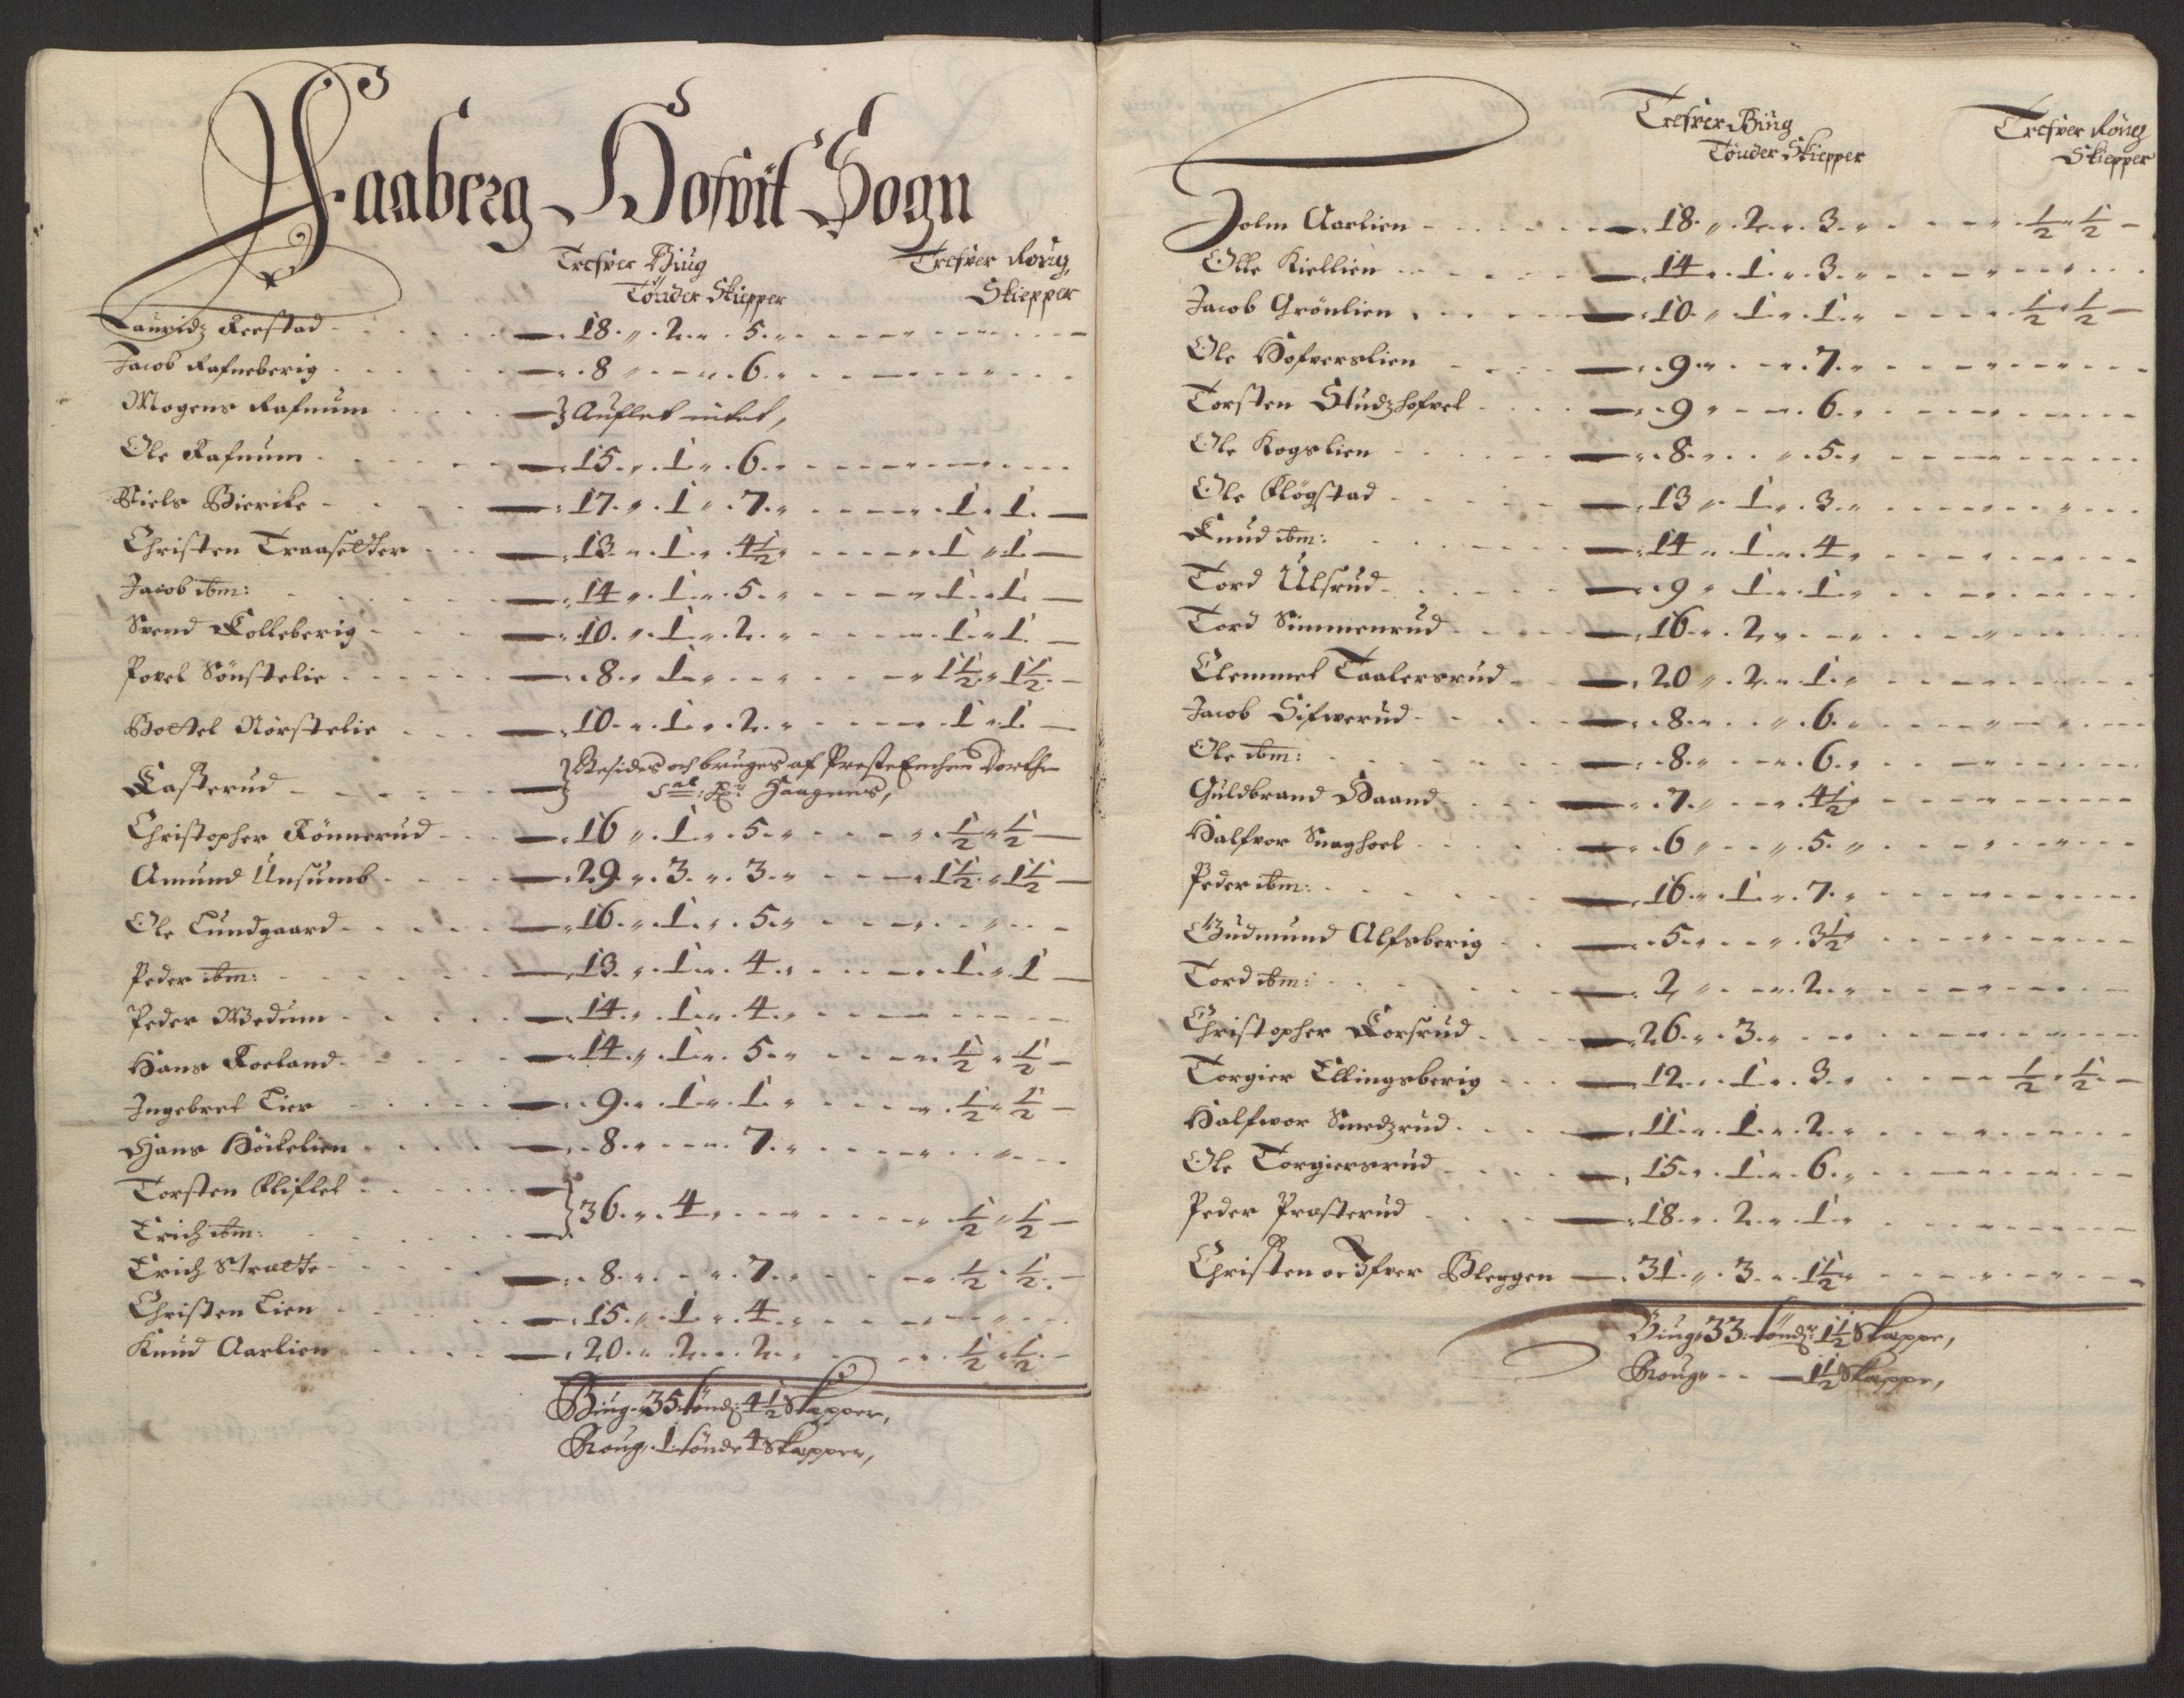 Faaberg Hofvit Sogn
Trefver Biug Trefver Roug,
Tönder Skiepper Skiepper
Lauridz Reestad - 18 „ 2 „ 5 „
Jacob Rafneberig - 8 „ - „ 6 „
Mogens Rafnum - } Auflet intet,
Ole Rafnum - 15 „ 1 „ 6 „
Niels Bierike - 17 „ 1 „ 7 „ - 1 „ 1 -
Christen Traaselder - 13 „ 1 „ 4½ „ - 1 „ 1 -
Jacob ibm: - 14 „ 1 „ 5 „ - 1 „ 1 -
Svend Kolleberig - 10 „ 1 „ 2 „ - 1 „ 1 -
Povel Sönstelie - 8 „ 1 „ - „ 1½ „ 1½ -
Bottel Nörstelie - 10 „ 1 „ 2 „ - 1 „ 1 -
} Besides och bruges af Preste Enchen Dorthe
Kasterud - } Sal: Hr: Haagens,
Christopher Rönnerud - 16 „ 1 „ 5 „ - ½ „ ½ -
Amund Unsumb - 29 „ 3 „ 3 „ - 1½ „ 1½ -
Ole Lundgaard - 16 „ 1 „ 5 „
Peder ibm: - 13 „ 1 „ 4 „ - 1 „ 1 -
Peder Wedum - 14 „ 1 „ 4 „
Hans Roeland - 14 „ 1 „ 5 „ - ½ „ ½ -
Ingebret Lier - 9 „ 1 „ 1 „ - ½ „ ½ -
Hans Höikelien - 8 „ - „ 7 „
Torsten Kliflet -
} 36 „ 4 „ - ½ „ ½ -
Erich ibm: -
Erich Strætte - 8 „ - „ 7 „ - ½ „ ½ -
Christen Lien - 15 „ 1 „ 4 „
Knud Aarlien - 20 „ 2 „ 2 „ - ½ „ ½ -
Biug 35 tönd: 4½ Skiepper,
Roug 1 tönde 4 Skiepper,
Trefver Biug Trefver Roug
Tönder Skiepper Skiepper
Jolm Aarlien - 18 „ 2 „ 3 „ - ½ „ ½ -
Olle Kiellien - 14 „ 1 „ 3 „
Jacob Grönlien - 10 „ 1 „ 1 „ - ½ „ ½ -
Ole Hofverslien - 9 „ - „ 7 „
Torsten Studzhofvel - 9 „ - „ 6 „
Ole Kogslien - 8 „ - „ 5 „
Ole Klögstad - 13 „ 1 „ 3 „
Knud ibm: - 14 „ 1 „ 4 „
Tord Ulsrud - 9 „ 1 „ 1 „
Tord Simmenrud - 16 „ 2 „
Clemmet Taalersrud - 20 „ 2 „ 1 „
Jacob Sifwerud - 8 „ - „ 6 „
Ole ibm: - 8 „ - „ 6 „
Guldbrand Baand - 7 „ - „ 4½ „
Halfvor Snaghoel - 6 „ - „ 5 „
Peder ibm: - 16 „ 1 „ 7 „
Gudmund Alfsberig - 5 „ - „ 3½ „
Tord ibm: - 2 „ - „ 2 „
Christopher Korsrud - 26 „ 3 „
Torgier Ellingsberig - 12 „ 1 „ 3 „ - ½ „ ½ -
Halfwor Smedzrud - 11 „ 1 „ 2 „
Ole Torgiersrud - 15 „ 1 „ 6 „
Peder Prasterud - 18 „ 2 „ 1 „
Christen Bleggen - 31 „ 3 „ 1½ „
Biug 33 tönd: 1½ Skieppe,
Roug - - 1½ Skieppe,